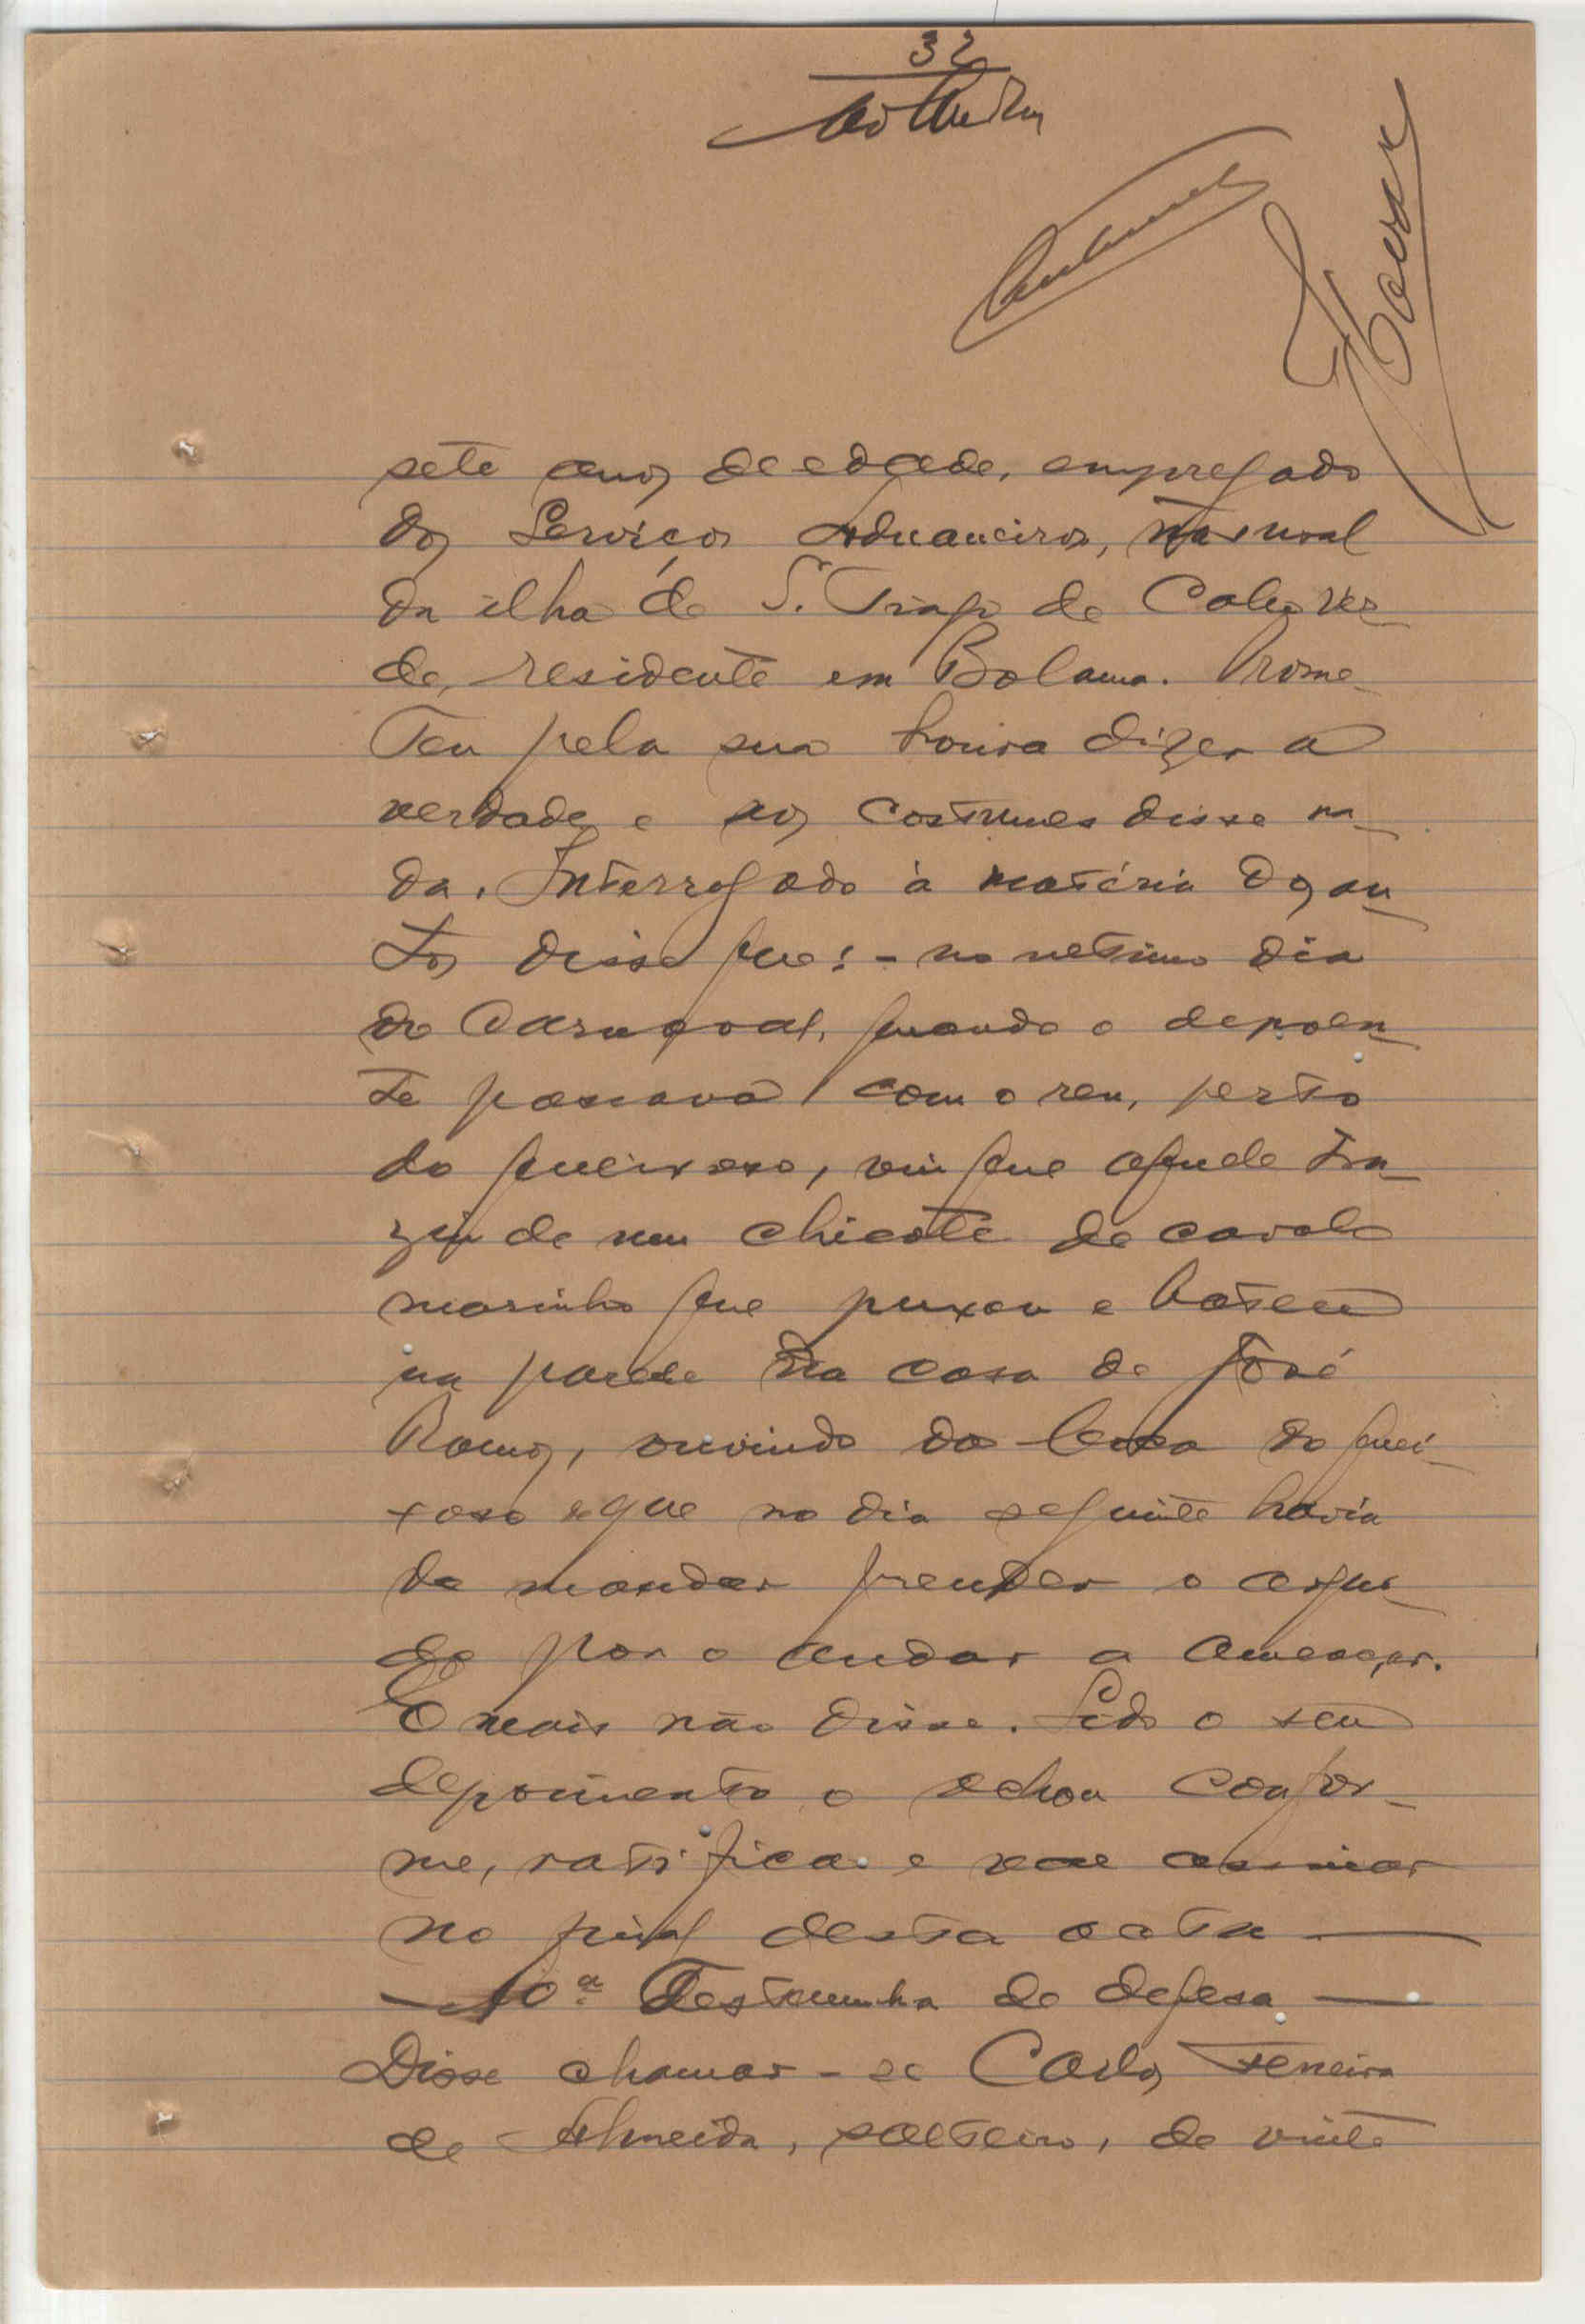 32
sete anos de edade, empregado
dos Serviços Aduaneiros, natural
da ilha de S. Tiago de Cabo Ver_
de, residente em Bolama. Prome_
teu pela sua honra dizer a
verdade e aos costumes disse na_
da. Interrogado à matéria dos au_
tos disse que: - no ultimo dia
do Carnaval, quando o depoen_
te passava com o reu, perto
do queixoso, viu que aquele tra_
zia de um chicote de cavalo
marinho que puxou e bateu
na parede da casa de José
Ramos, ouvindo da boca do quei_
xoso que no dia seguinte havia
de mandar prender o arqui_
do por o andar a ameaçar.
E mais não disse. Lido o seu
depoimento o achou confor_
me, ratifica e vae assinar
no final desta acta —
— 10ª Testemunha de defesa —
Disse chamar-se Carlos Ferreira
de Almeida, solteiro, de vinte